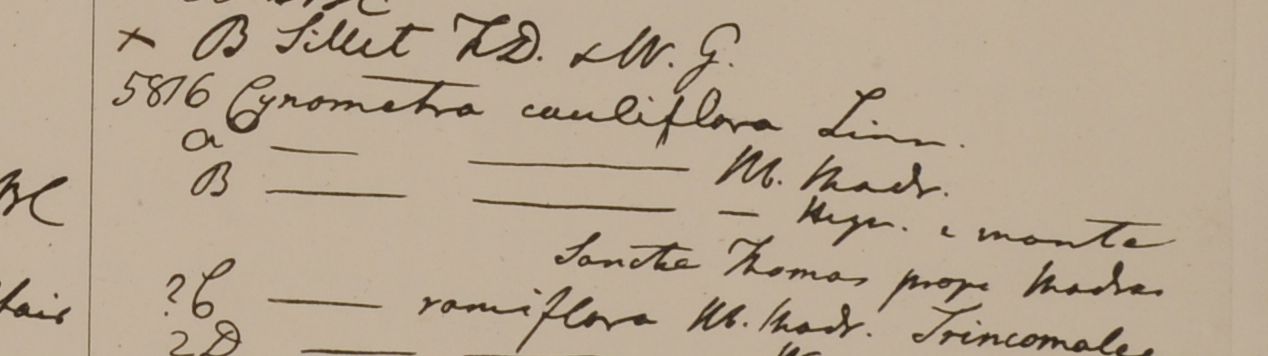 × B Sillet F.D. & W. G.
5816 Cynometra cauliflora Linn.
a — — H. Madr.
B — — — Heyn. e monte
Sanctae Thomas prope Madras
?C — ramiflora H. Madr. Trincomalee
?D — —